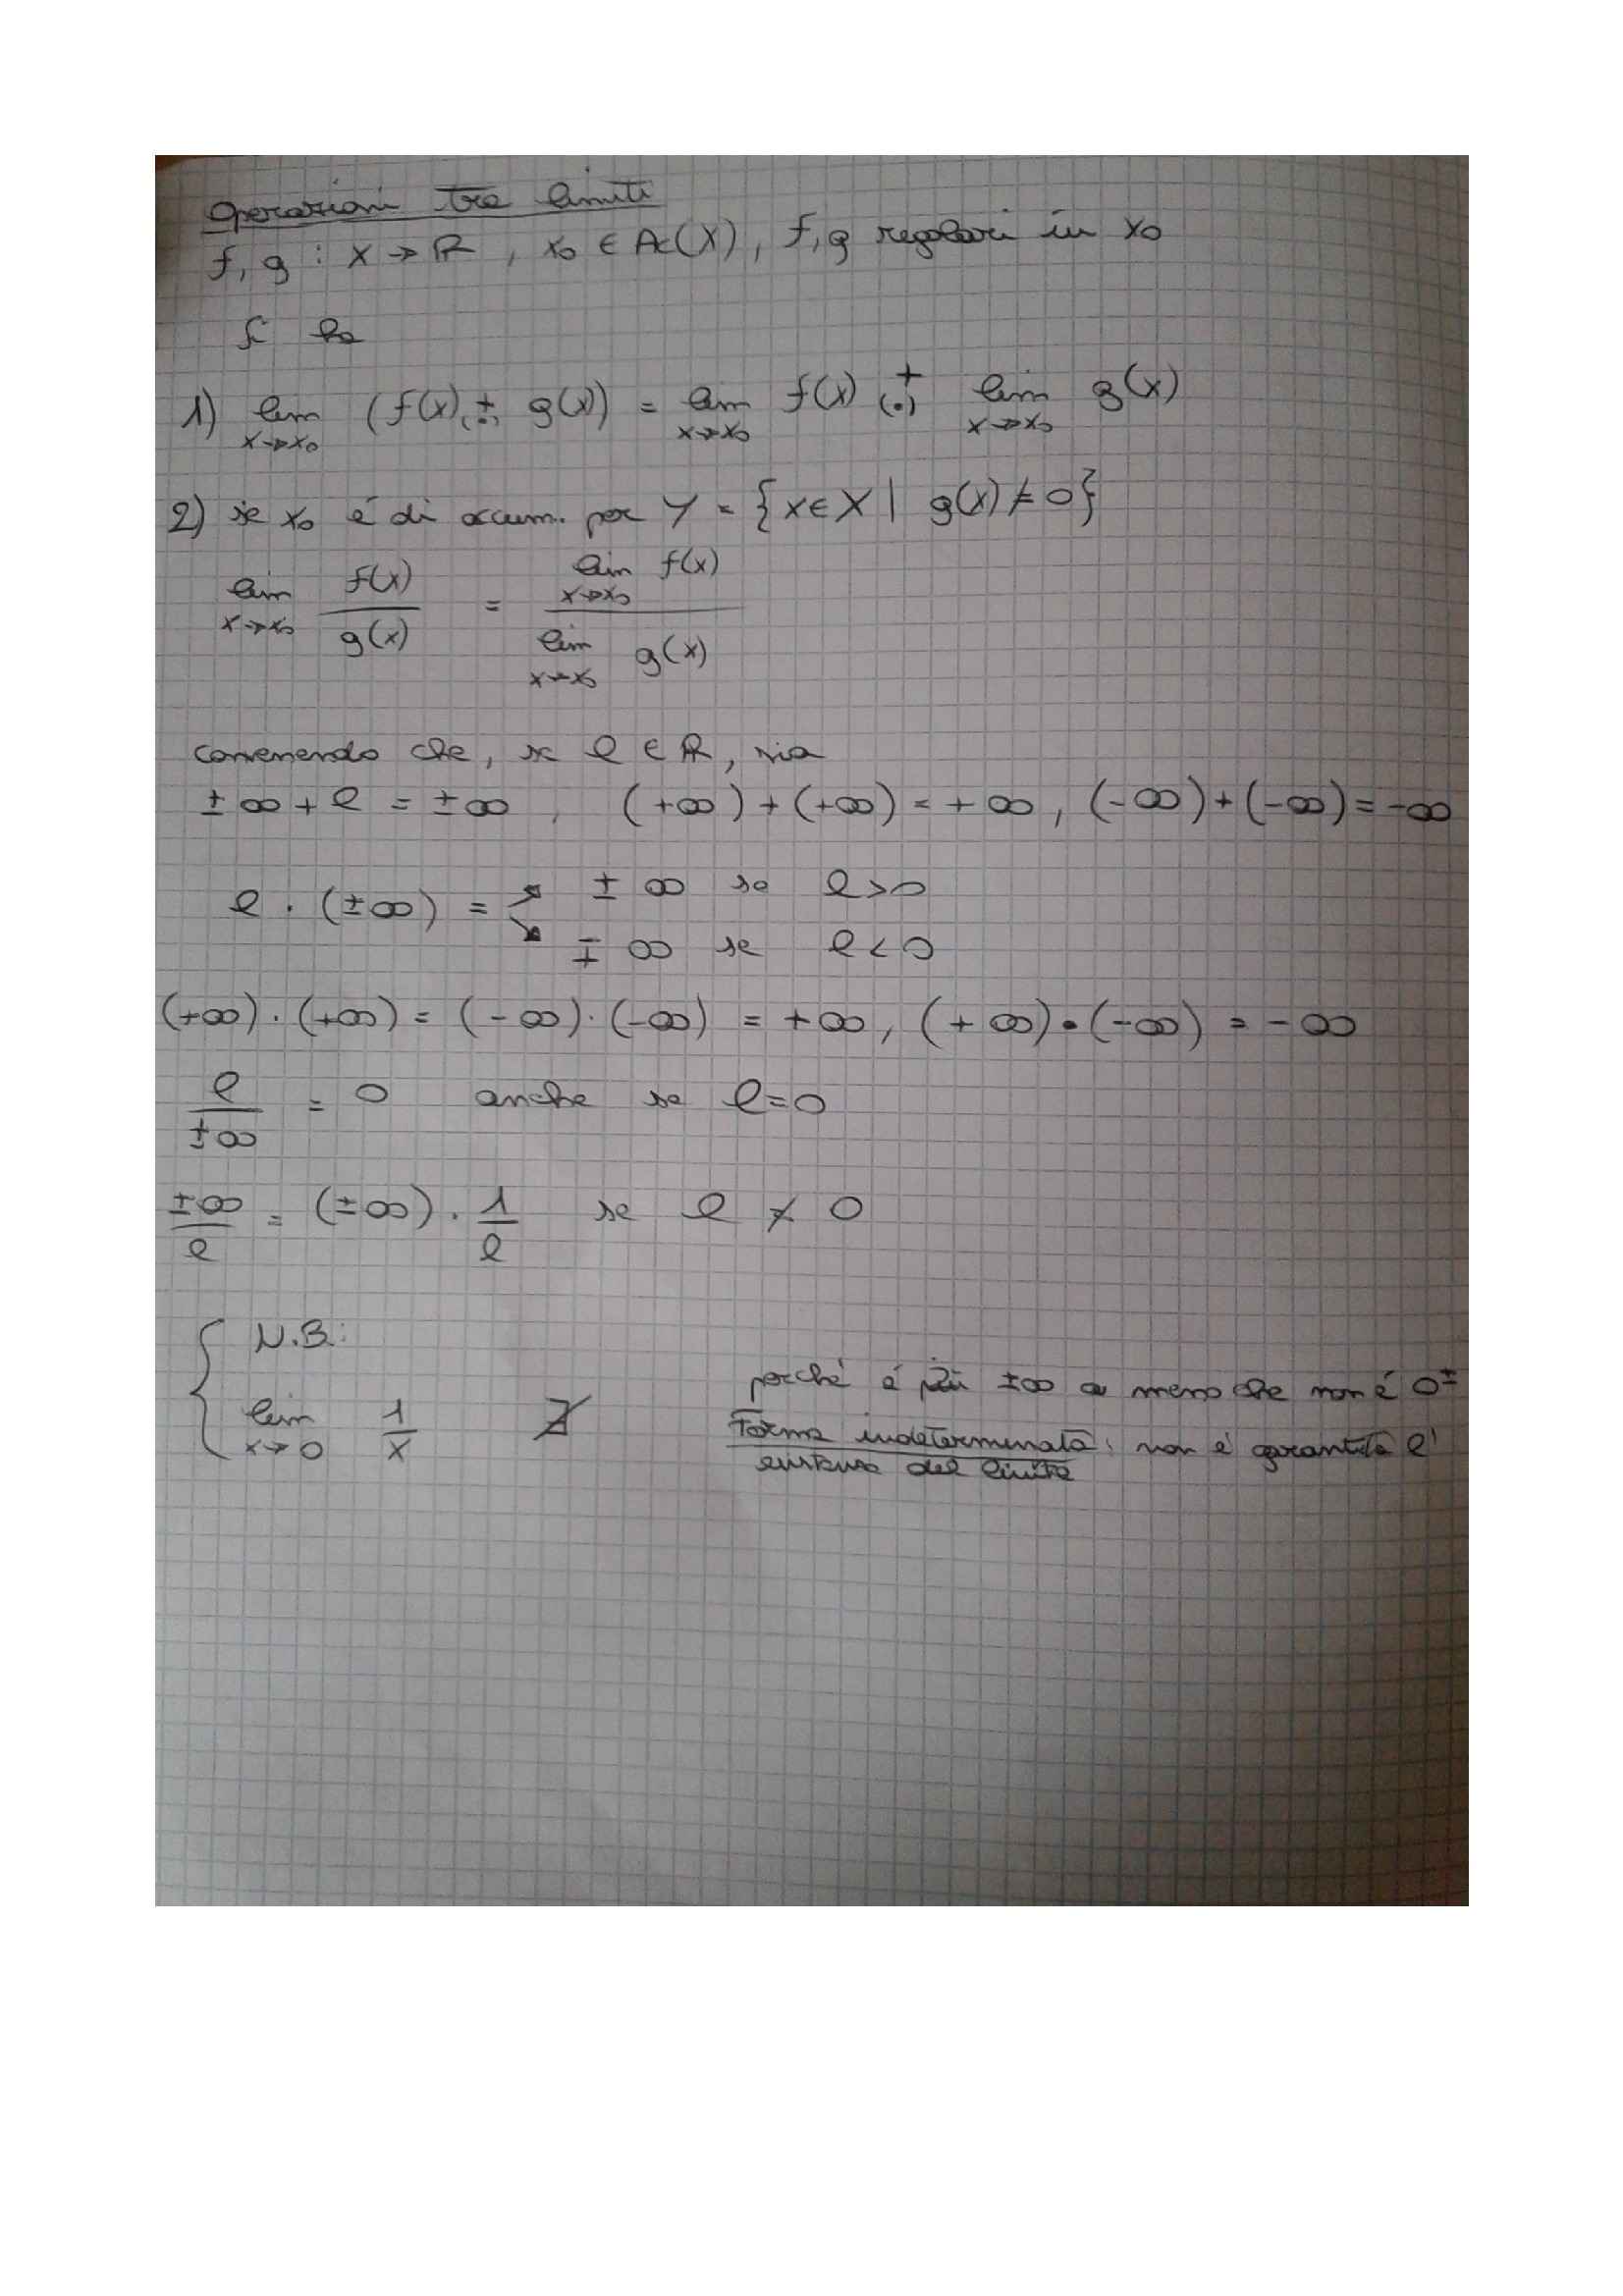 Operazioni tra limiti
f, g : X → ℝ , x₀ ∈ Ac(X) , f, g regolari in x₀
Si ha
1) lim x→x₀ (f(x) ± (·) g(x)) = lim x→x₀ f(x) + (·) lim x→x₀ g(x)
2) se x₀ é di accum. per Y = {x ∈ X | g(x) ≠ 0}
lim x→x₀ f(x)/g(x) = lim x→x₀ f(x) / lim x→x₀ g(x)
convenendo che, se l ∈ ℝ, sia
± ∞ + l = ± ∞ , (+∞) + (+∞) = + ∞ , (-∞) + (-∞) = -∞
l · (±∞) = ↗ ± ∞ se l > 0
↘ ∓ ∞ se l < 0
(+∞) · (+∞) = (-∞) · (-∞) = +∞ , (+∞) · (-∞) = - ∞
l/±∞ = 0 anche se l = 0
±∞/l = (±∞) · 1/l se l ≠ 0
N.B:
lim x→0 1/x ∄
perché é ±∞ a meno che non é 0±
Forma indeterminata: non é garantita l'
esistenza del limite